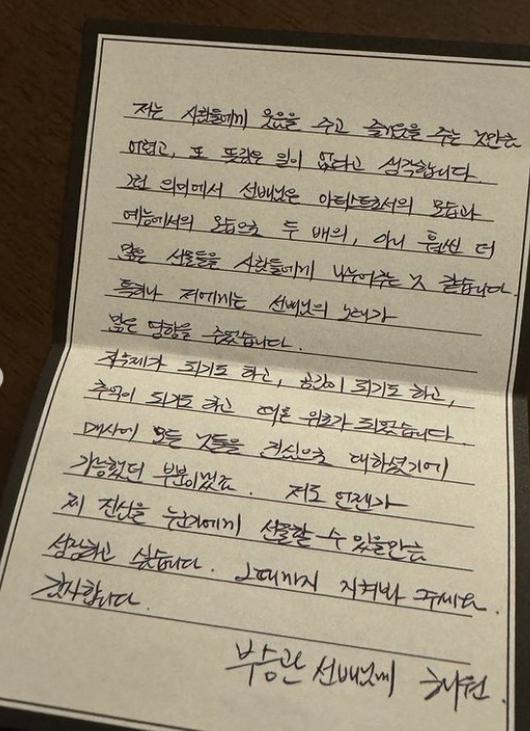 저는 사람들에게 웃음을 주고 즐거움을 주는 것만큼
어렵고, 또 뜻깊은 일이 없다고 생각합니다.
그런 의미에서 선배님은 아티스트로서의 모습과
예능에서의 모습으로 두 배의, 아니 훨씬 더
많은 선물들을 사람들에게 나누어주는 것 같습니다.
특히나 저에게는 선배님의 노래가
많은 영향을 주었습니다.
가 되기도 하고, 공감이 되기도 하고,
추억이 되기도 하고 때론 위로가 되었습니다.
매사에 모든 것들을 진심으로 대하셨기에
가능했던 부분이겠죠. 저도 언젠가
제 진심을 누군가에게 선물할 수 있을만큼
성장하고 싶습니다. 그때까지 지켜봐 주세요.
감사합니다.
부승관 선배님께